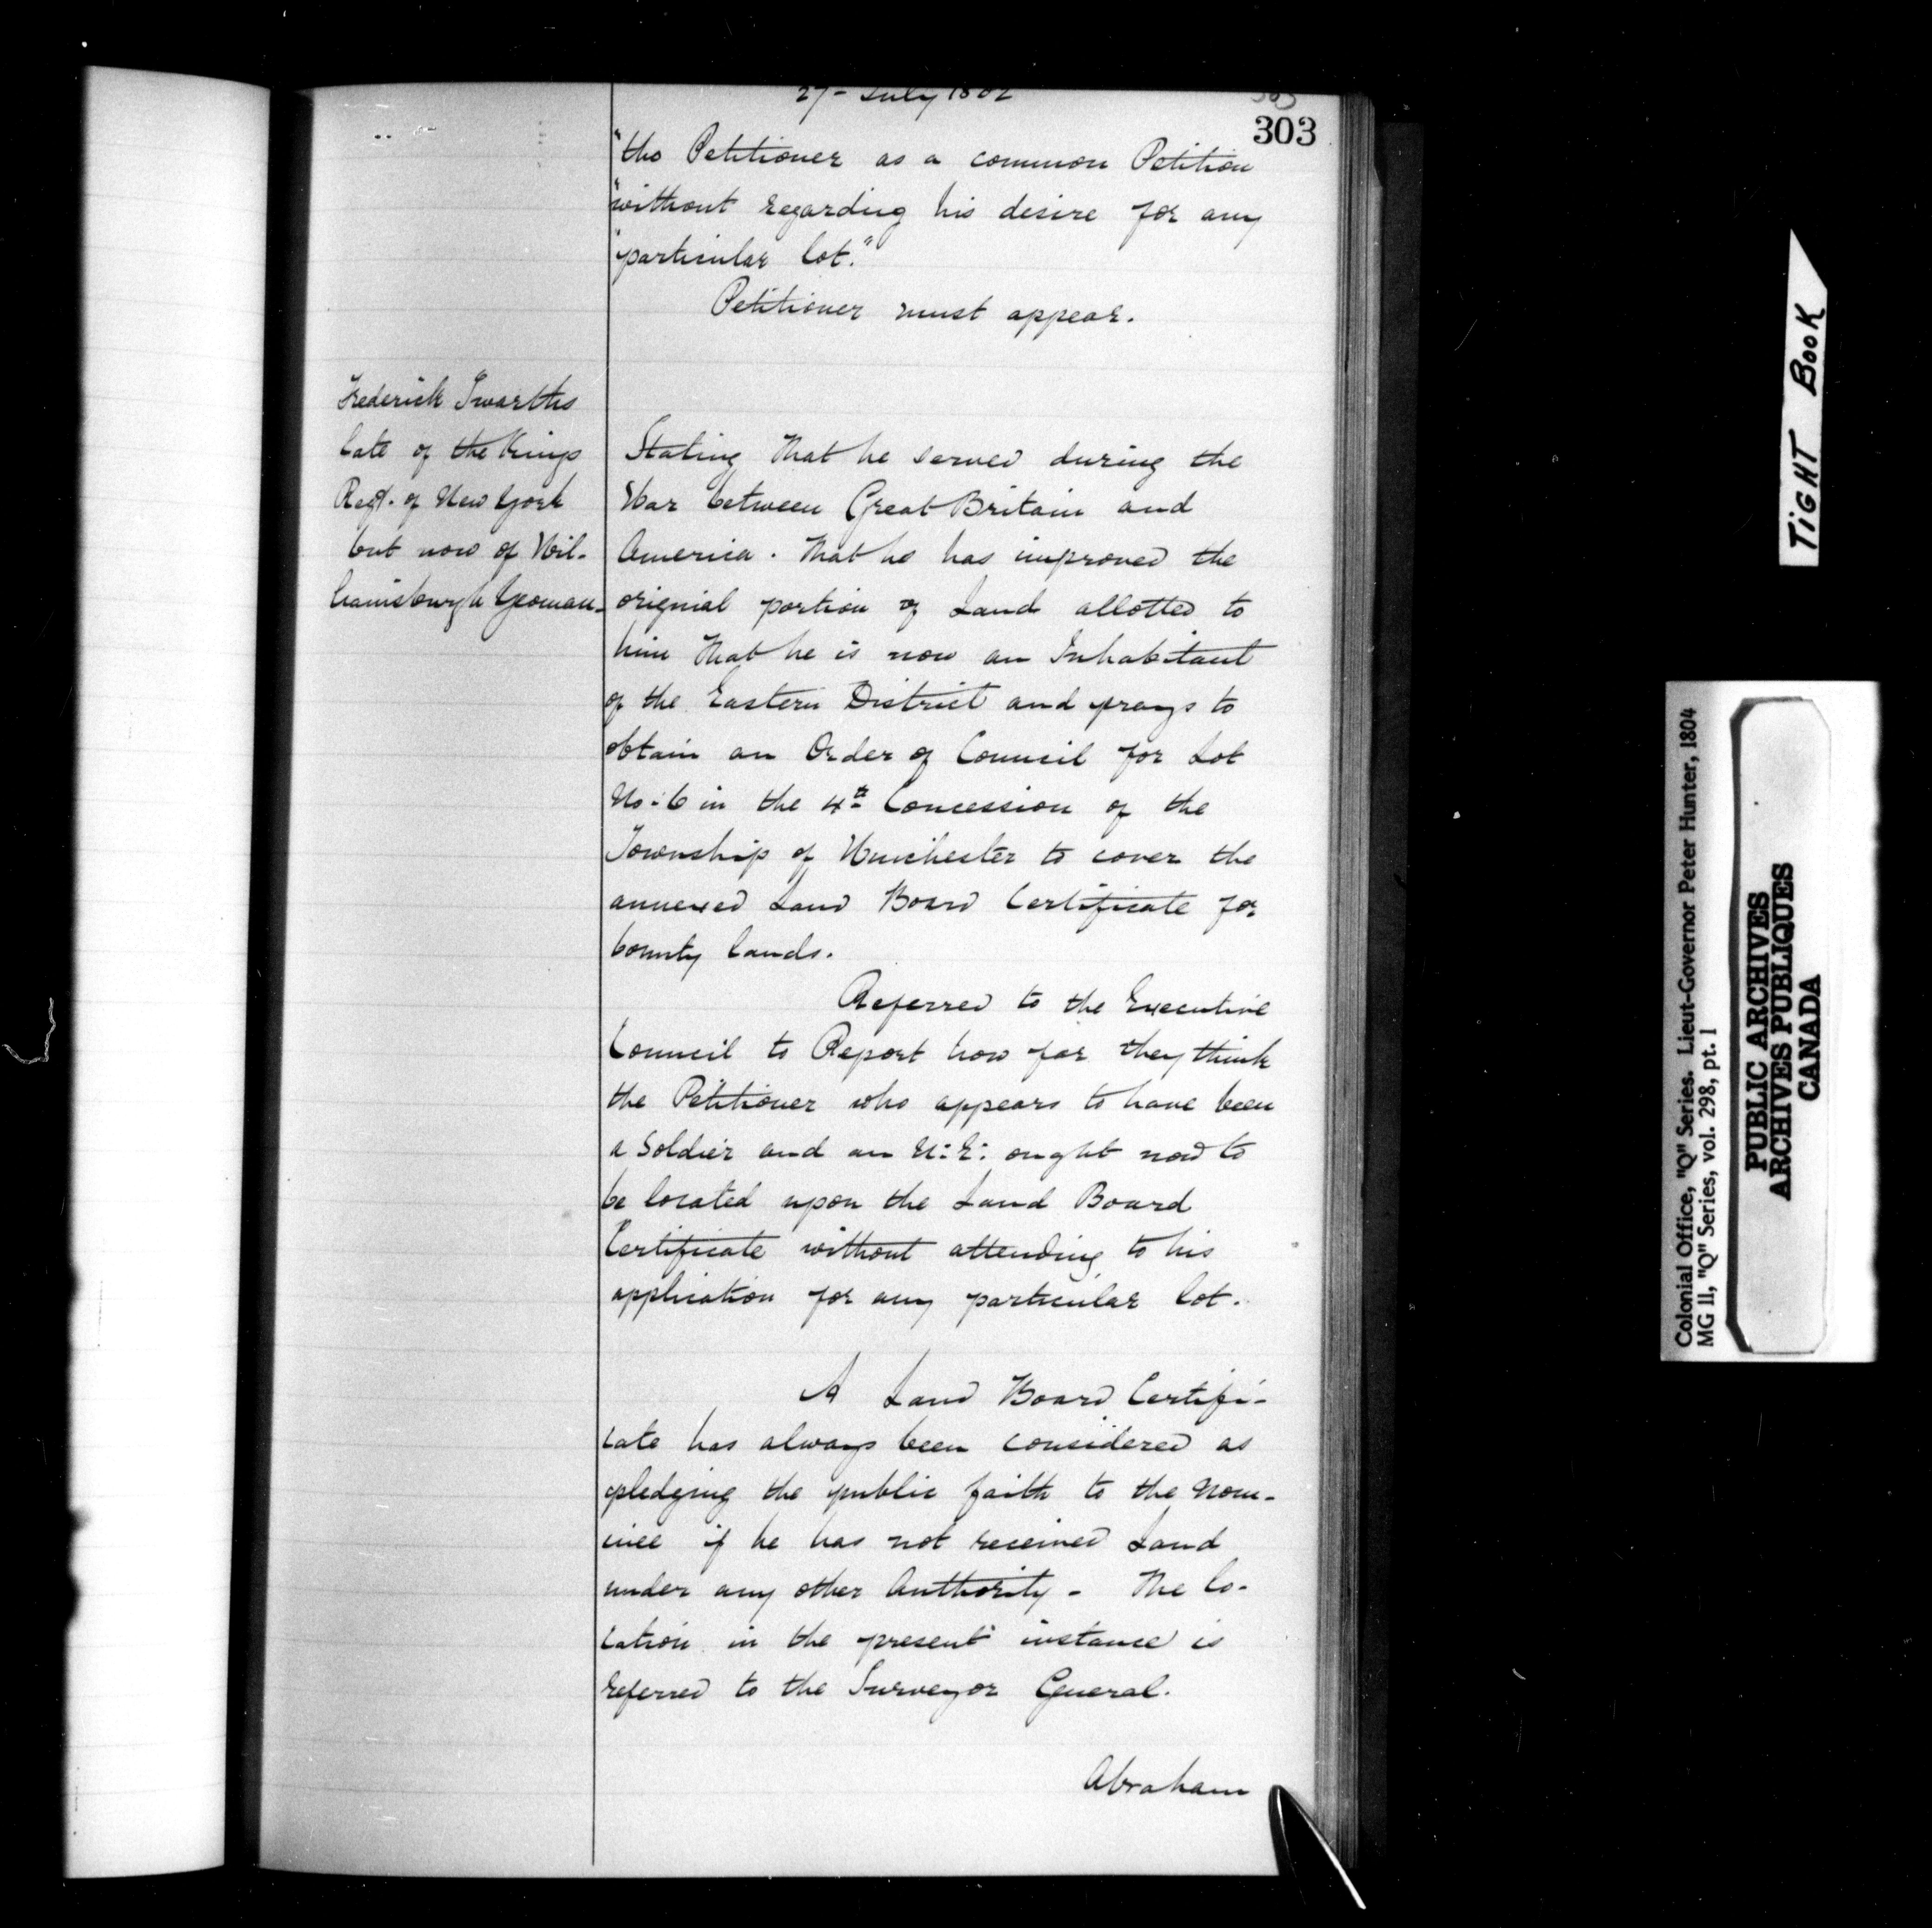 27 - July 1802
303
303
"the Petitioner as a common Petition
"without regarding his desire for any
"particular lot."
Petitioner must appear.
Frederick Swarths
late of the Kings
Regt. of New York
but now of Wil-
liamsburgh Yeoman.
Stating That he served during the
War between Great Britain and
America. That he has improved the
orignial portion of Land allotted to
him That he is now an Inhabitant
of the Eastern District and prays to
obtain an Order of Council for Lot
No. 6 in the 4th Concession of the
Township of Winchester to cover the
annexed Land Board Certificate for
bounty lands.
Referred to the Executive
Council to Report how far they think
the Petitioner who appears to have been
a Soldier and an U:E: ought now to
be located upon the Land Board
Certificate without attending to his
application for any particular lot.
A Land Board Certifi-
cate has always been considered as
pledging the public faith to the Nom-
inee if he has not received Land
under any other Authority - The lo-
cation in the present instance is
referred to the Surveyor General.
Abraham
TIGHT BOOK
Colonial Office, "Q" Series. Lieut-Governor Peter Hunter, 1804
MG 11, "Q" Series, vol. 298, pt. 1
PUBLIC ARCHIVES
ARCHIVES PUBLIQUES
CANADA